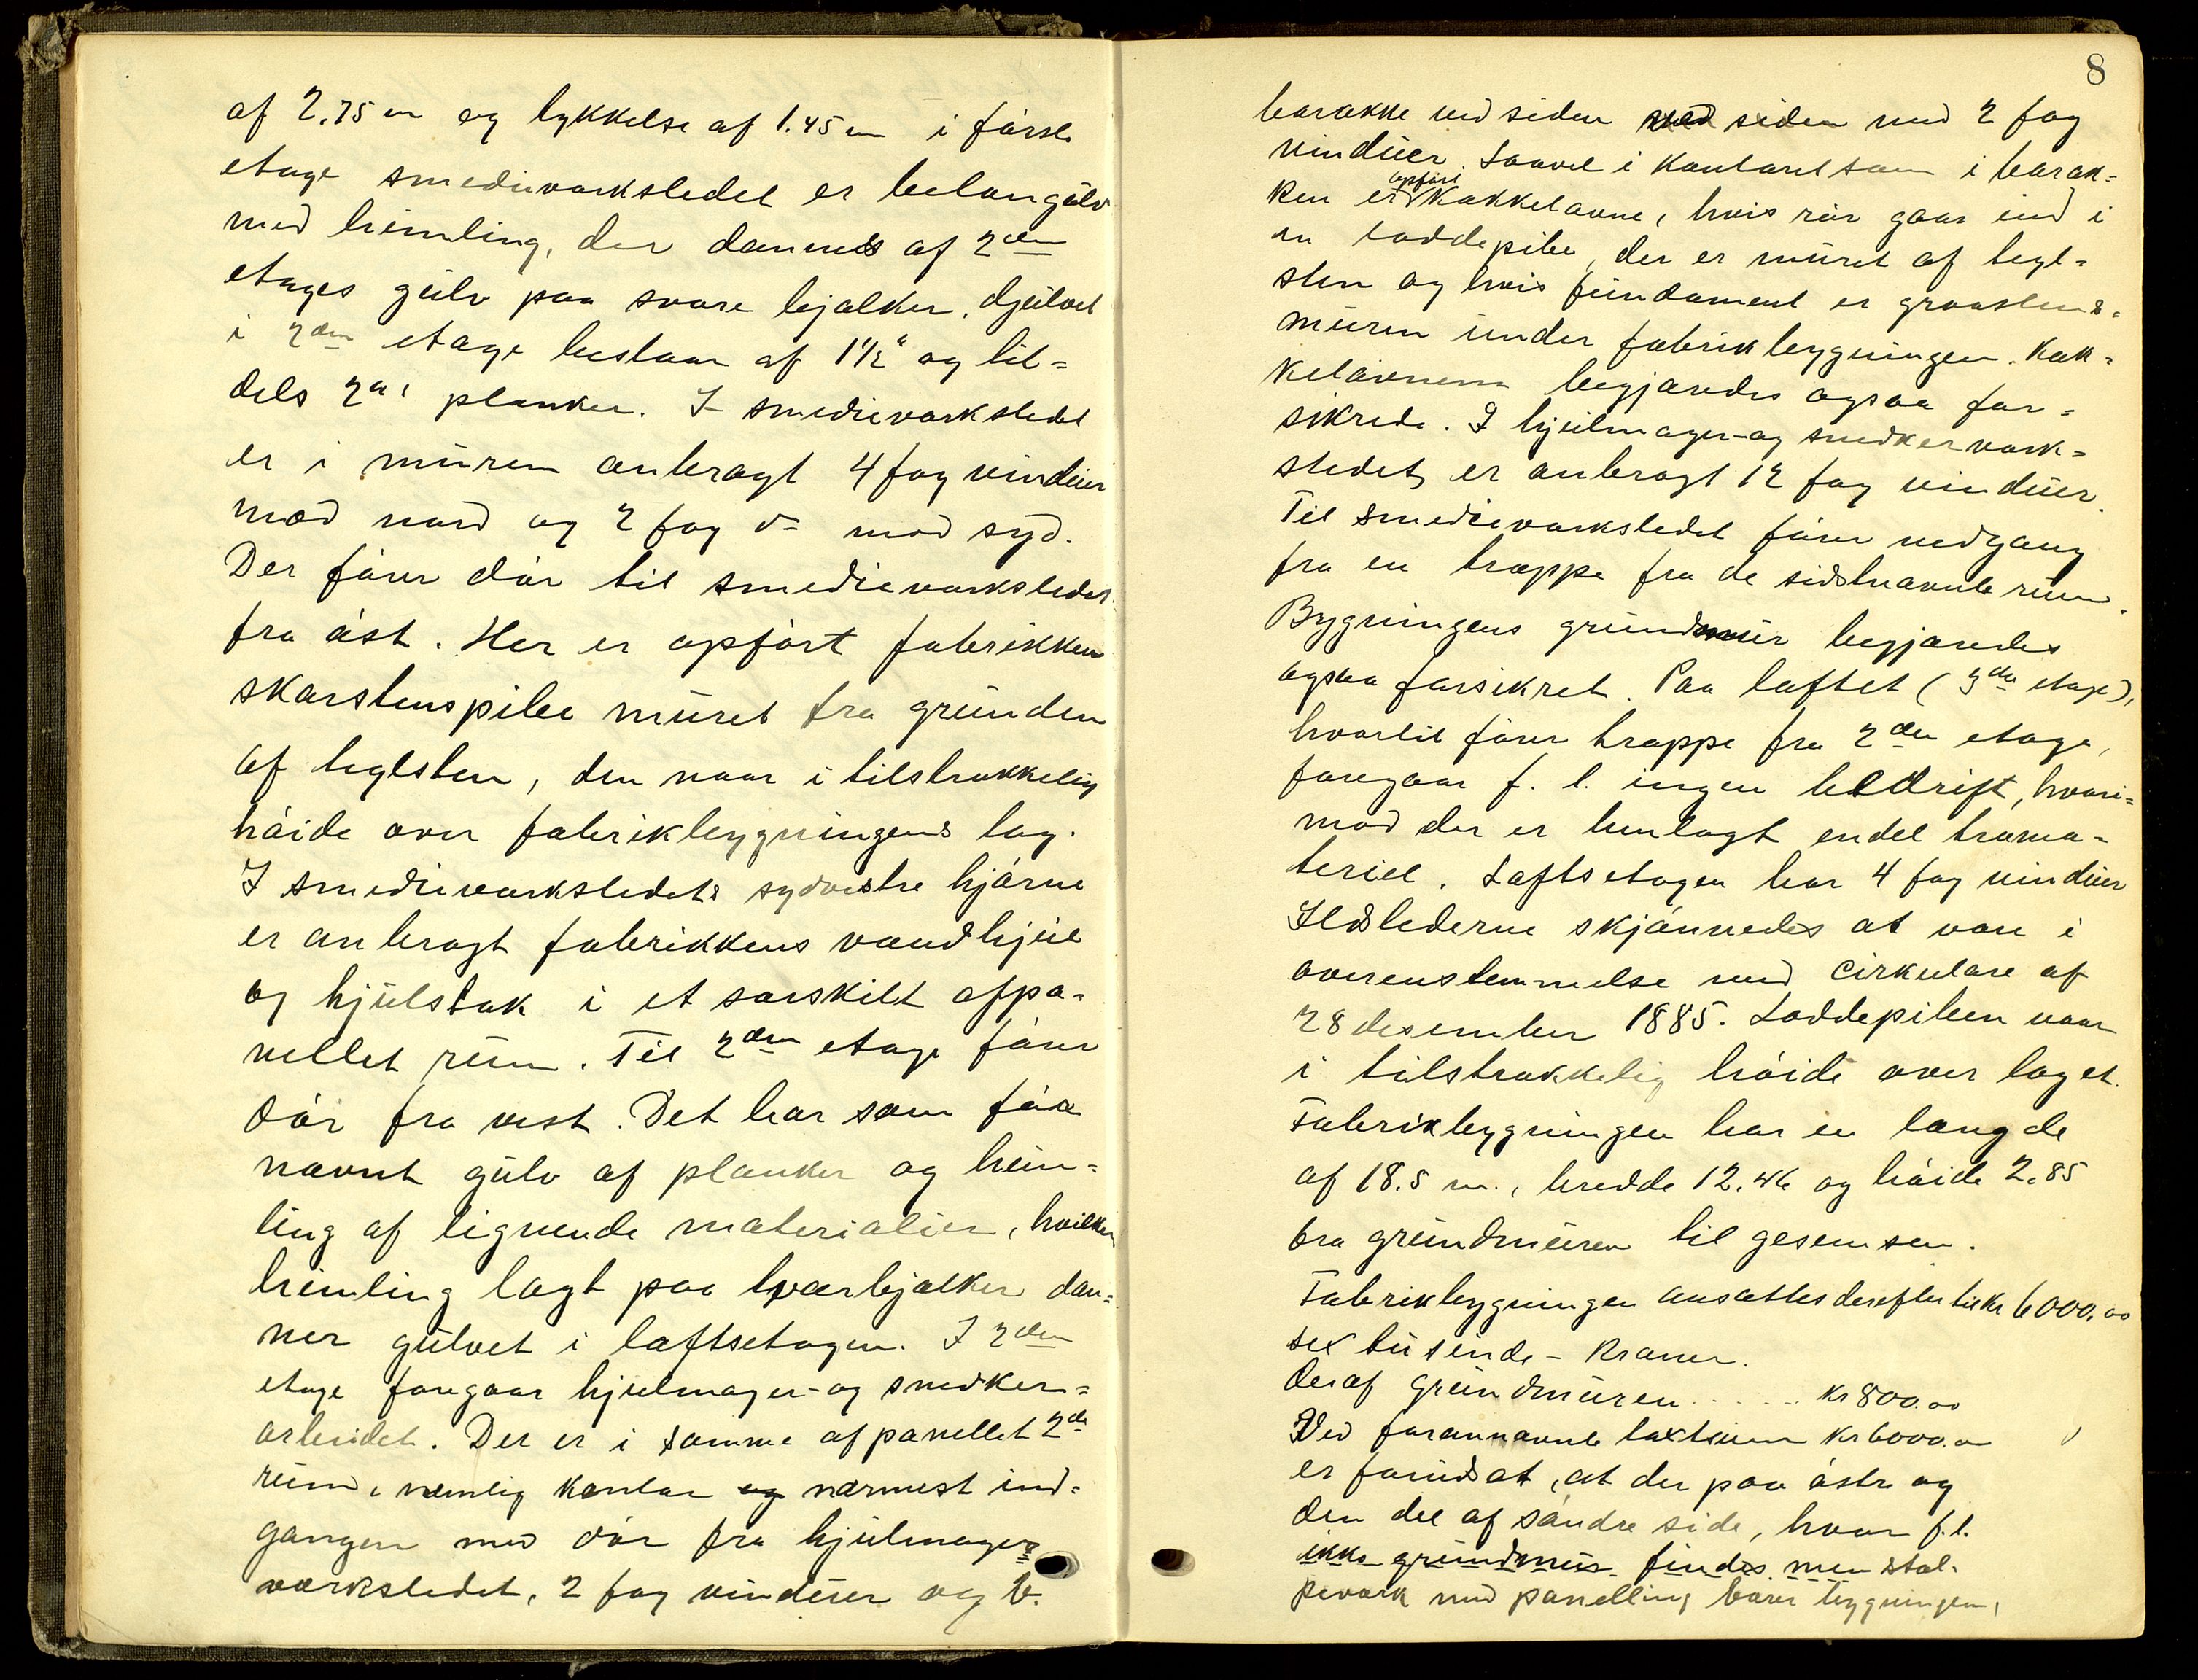 af 2.75 m og tykkelse af 1.45 m i første
etage smedieverkstedet er betongulv
med himling, der dannes af 2den
etages gulv paa svære bjælker. Gulvet
i 2den etage bestaar af 1½" og til=
dels 2" planker. I smedieverkstedet
er i muren anbragt 4 fag vinduer
mod nord og 2 fag do mod syd.
Der fører dør til smedieverkstedet
fra øst. Her er opført fabrikkens
skorstenspibe muret fra grunden
af teglsten, den naar i tilstrækkelig
høide over fabrikbygningens tag.
I smedieverkstedets sydvestre hjørne
er anbragt fabrikkens vandhjul
og hjulstok i et særskilt afpa=
nellet rum. Til 2den etage fører
dør fra vest. Det har som før
nævnt gulv af planker og him=
ling af lignende materialier, hvilken
himling lagt paa tværbjælker dan=
ner gulvet i loftsetagen. I 2den
etage foregaar hjulmager- og snedker=
arbeidet. Der er i samme afpanellet 2de
rum, nemlig kontor og nærmest ind=
gangen med dør fra hjulmager=
verkstedet, 2 fag vinduer og b.
8
barakke ved siden ved siden med 2 fag
vinduer. Saavel i kontoret som i barak=
ken er opført kakkelovne, hvis rør gaar ind i
en loddepibe, der er muret af tegl=
sten og hvis fundament er graastens=
muren under fabrikbygningen. Kak=
kelovnene begjæredes ogsaa for=
sikrede. I hjulmager- og snedkerverk=
stedet er anbragt 12 fag vinduer.
Til smedieverkstedet fører nedgang
fra en trappe fra de sidstnævnte rum.
Bygningens grundmur begjæredes
ogsaa forsikret. Paa loftet (3die etage),
hvortil fører trappe fra 2den etage,
foregaar f. t. ingen bedrift, hvori=
mod der er henlagt endel trama=
teriel. Loftsetagen har 4 fag vinduer
Ildstederne skjønnedes at være i
overenstemmelse med cirkulære af
28 desember 1885. Loddepiben naar
i tilstrækkelig høide over taget.
Fabrikbygningen har en længde
af 18.5 m., bredde 12.46 og høide 2.85
fra grundmuren til gesemsen.
Fabrikbygningen ansættes derefter til kr 6000.00
sex tusinde - kroner.
Deraf grundmuren ..... kr 800.00
Ved forannævnte taxtsum kr 6000.00
er forudsat, at der paa østre og
den del af søndre side, hvor f.t.
ikke grundmur findes men stol=
peverk med panelling bærer bygningen,